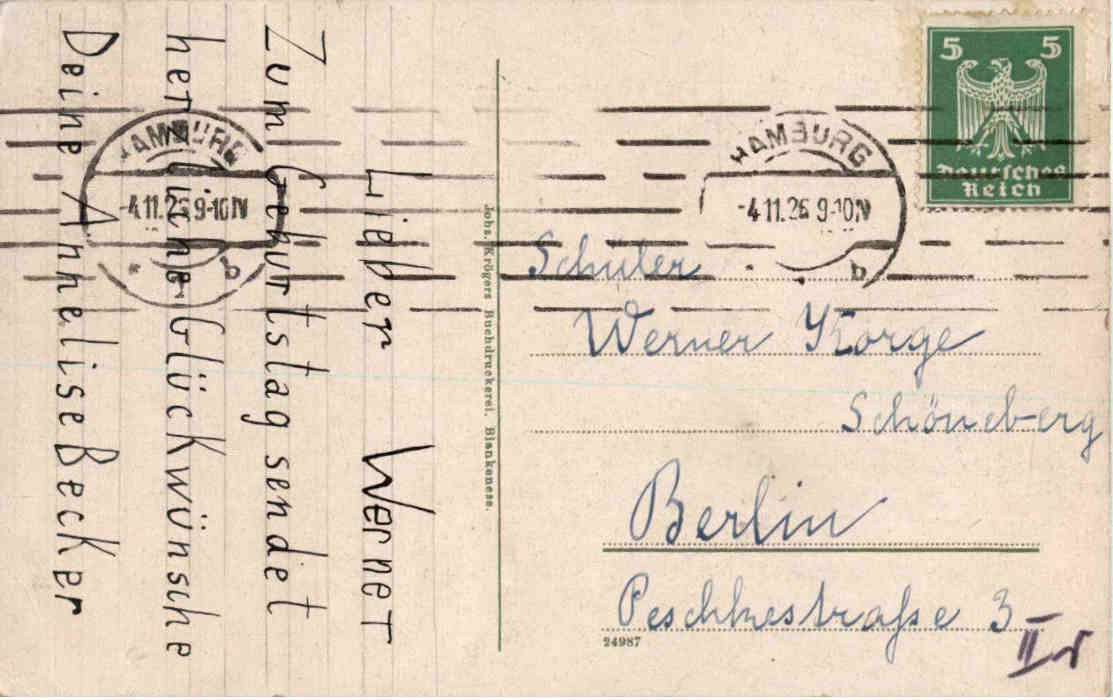 Lieber Werner
Zum Geburtstag sendet
herzliche Glückwünsche
Deine Anneliese Becker
HAMBURG
-4.11.26 9-10 N
* b
Johs. Krögers Buchdruckerei. Blankenese.
HAMBURG
-4.11.26 9-10 N
b
5 5
Deutsches
Reich
Schüler
Werner Korge
Schöneberg
Berlin
Peschkestraße 3
24987
II r